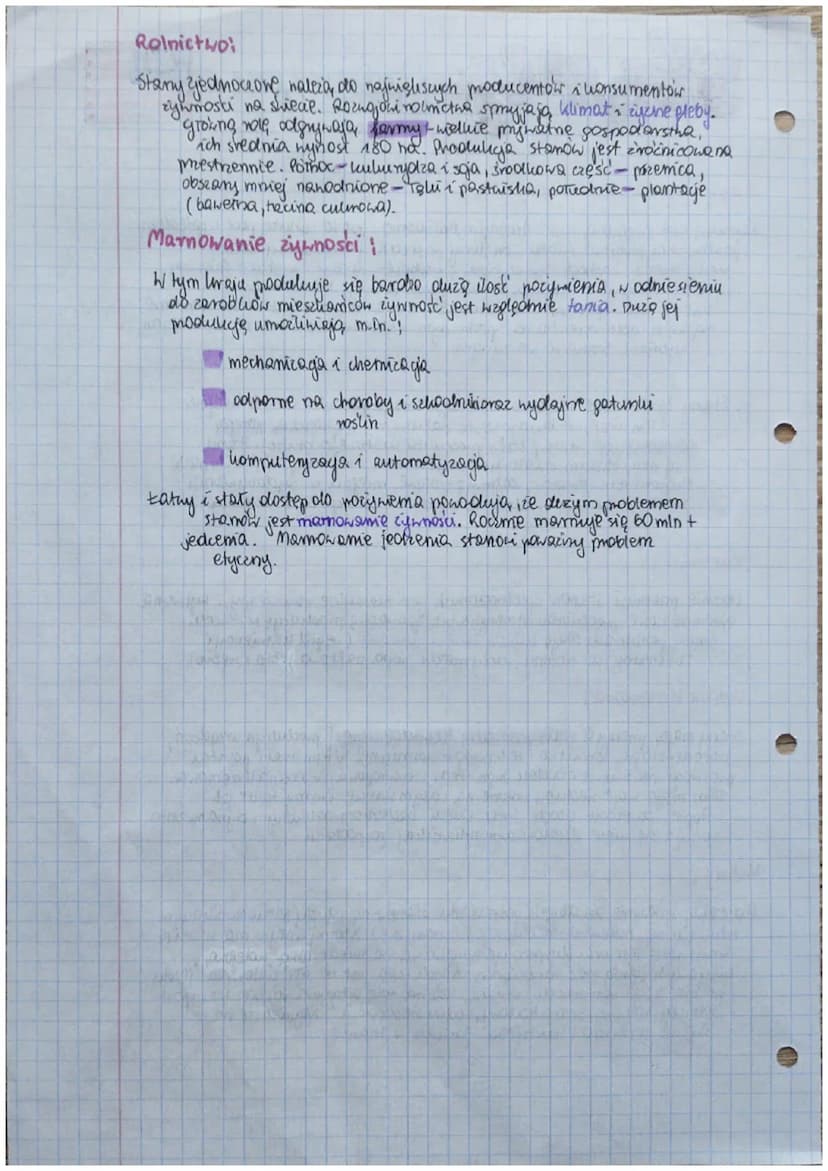 Rolnictwo:
Stany zjednoczone należą do największych producentów i konsumentów
żywności na świecie. Rozwojowi rolnictwa sprzyjają klimat i żyzne gleby.
Główną rolę odgrywają farmy - wielkie prywatne gospodarstwa,
ich średnia wynosi 180 ha. Produkcja stanów jest zróżnicowana
przestrzennie. Północ - kukurydza i soja, środkowa część - pszenica,
obszary mniej nawodnione - łąki i pastwiska, południe - plantacje
(bawełna, trzcina cukrowa).
Marnowanie żywności:
W tym kraju produkuje się bardzo dużą ilość pożywienia, w odniesieniu
do zarobków mieszkańców żywność jest względnie tania. Dużą jej
produkcję umożliwiają m.in.:
mechanizacja i chemizacja
odporne na choroby i szkodniki oraz wydajne gatunki
roślin
komputeryzacja i automatyzacja
Łatwy i stały dostęp do pożywienia powodują, że dużym problemem
stanów jest marnowanie żywności. Rocznie marnuje się 60 mln t
jedzenia. Marnowanie jedzenia stanowi poważny problem
etyczny.